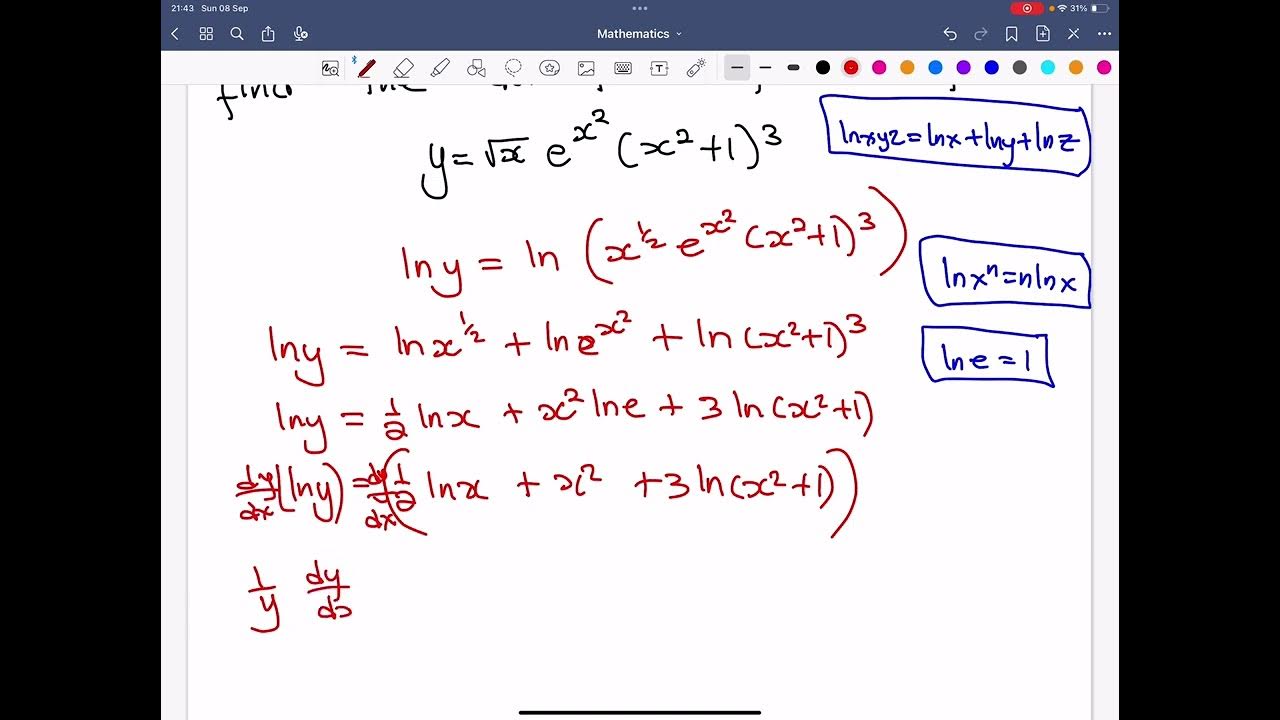 21:43 Sun 08 Sep
31%
Mathematics
find the
y = √x e^{x^2} (x^2+1)^3
lnxyz = lnx + lny + lnz
ln y = ln (x^{1/2} e^{x^2} (x^2+1)^3)
lnx^n = nlnx
lny = lnx^{1/2} + lne^{x^2} + ln(x^2+1)^3
lne = 1
lny = 1/2 lnx + x^2 lne + 3 ln(x^2+1)
dy/dx (lny) = dy/dx (1/2 lnx + x^2 + 3 ln(x^2+1))
1/y dy/dx